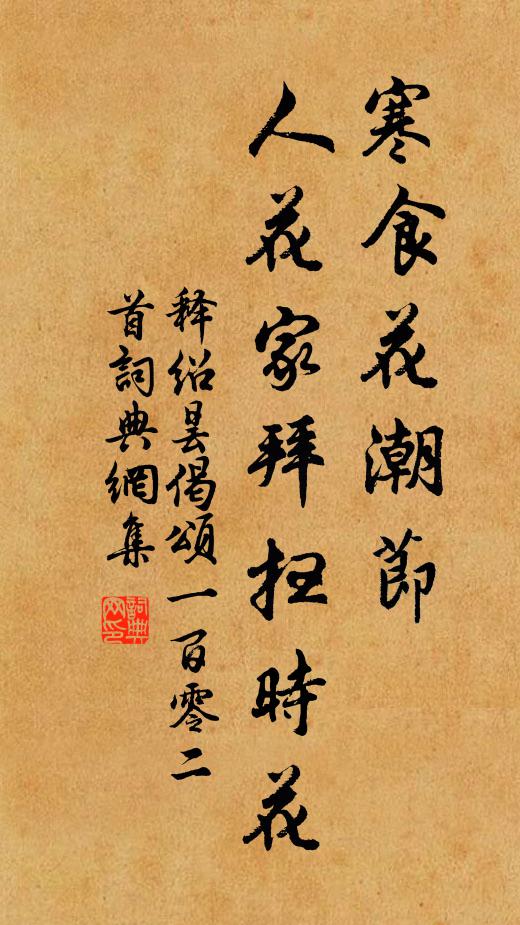 寒食花潮節
人花家拜扫時花
释绍昙偈頌一百零二
首詞典網集
詞典
网印